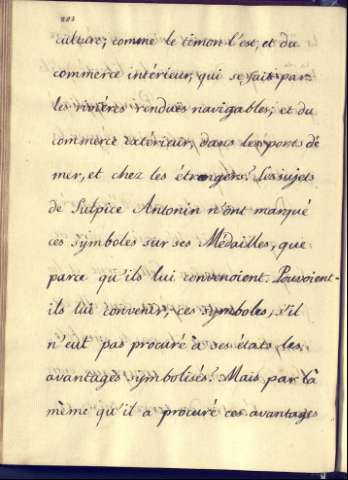 culture; comme le timon l'est, et du
commerce intérieur, qui se fait par
les rivières rendues navigables; et du
commerce extérieur, dans les ports de
mer, et chez les étrangers? Les sujets
de Sulpice Antonin n'ont marqué
ces symboles sur ses Médailles, que
parce qu'ils lui convenoient. Pouvoient-
ils lui convenir, ces symboles, s'il
n'eut pas procuré à ses états les
avantages symbolisés? Mais par là
même qu'il a procuré ces avantages